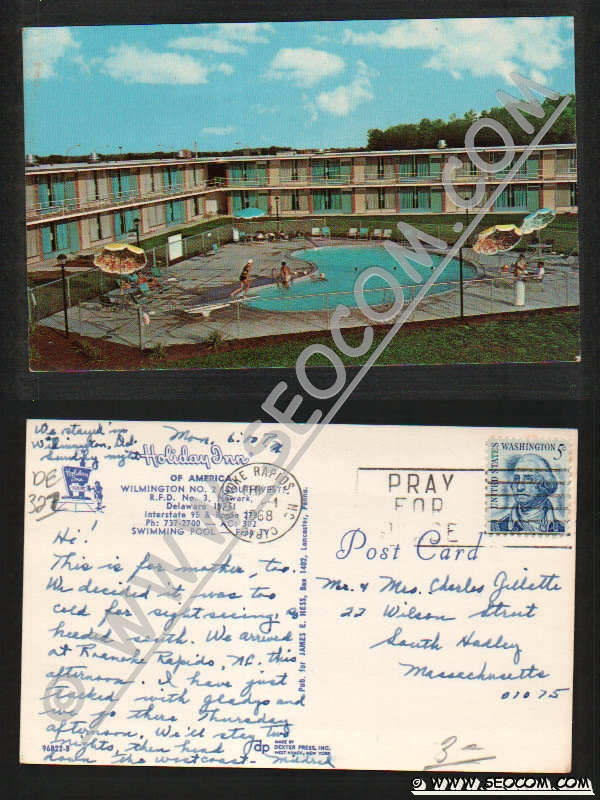 © WWW.SEOCOM.COM
We stayed in
Wilmington, Del.
Sunday night
Mon. 6:
DE
327
Holiday Inn
OF AMERICA
WILMINGTON NO. 2 (SOUTHWEST)
R.F.D. No. 3, Newark,
Delaware
Interstate 95 &
Ph: 737-2700 302
SWIMMING POOL
Hi!
This is for mother, too.
We decided it was too
cold for sight-seeing, &
headed south. We arrived
at Roanoke Rapids, NC. this
afternoon. I have just
talked with Gladys and
we go there Thursday
afternoon. We'll stay two
nights, then head
down the west coast. Mildred
96822-B
dp
MADE BY
DEXTER PRESS, INC.
WEST NYACK, NEW YORK
Pub. for JAMES E. HESS, Box 1402, Lancaster, Penna.
ROANOKE RAPIDS, N.C.
1968
PRAY
FOR
UNITED STATES
WASHINGTON 5c
Post Card
Mr. & Mrs. Charles Gillette
22 Wilson Street
South Hadley
Massachusetts
01075
© WWW.SEOCOM.COM